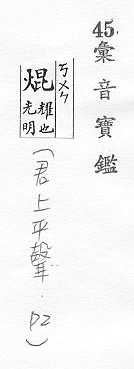 45.彙音寶鑑
ㄎㄨㄣ
焜
耀也
光明
(君上平聲. P2)